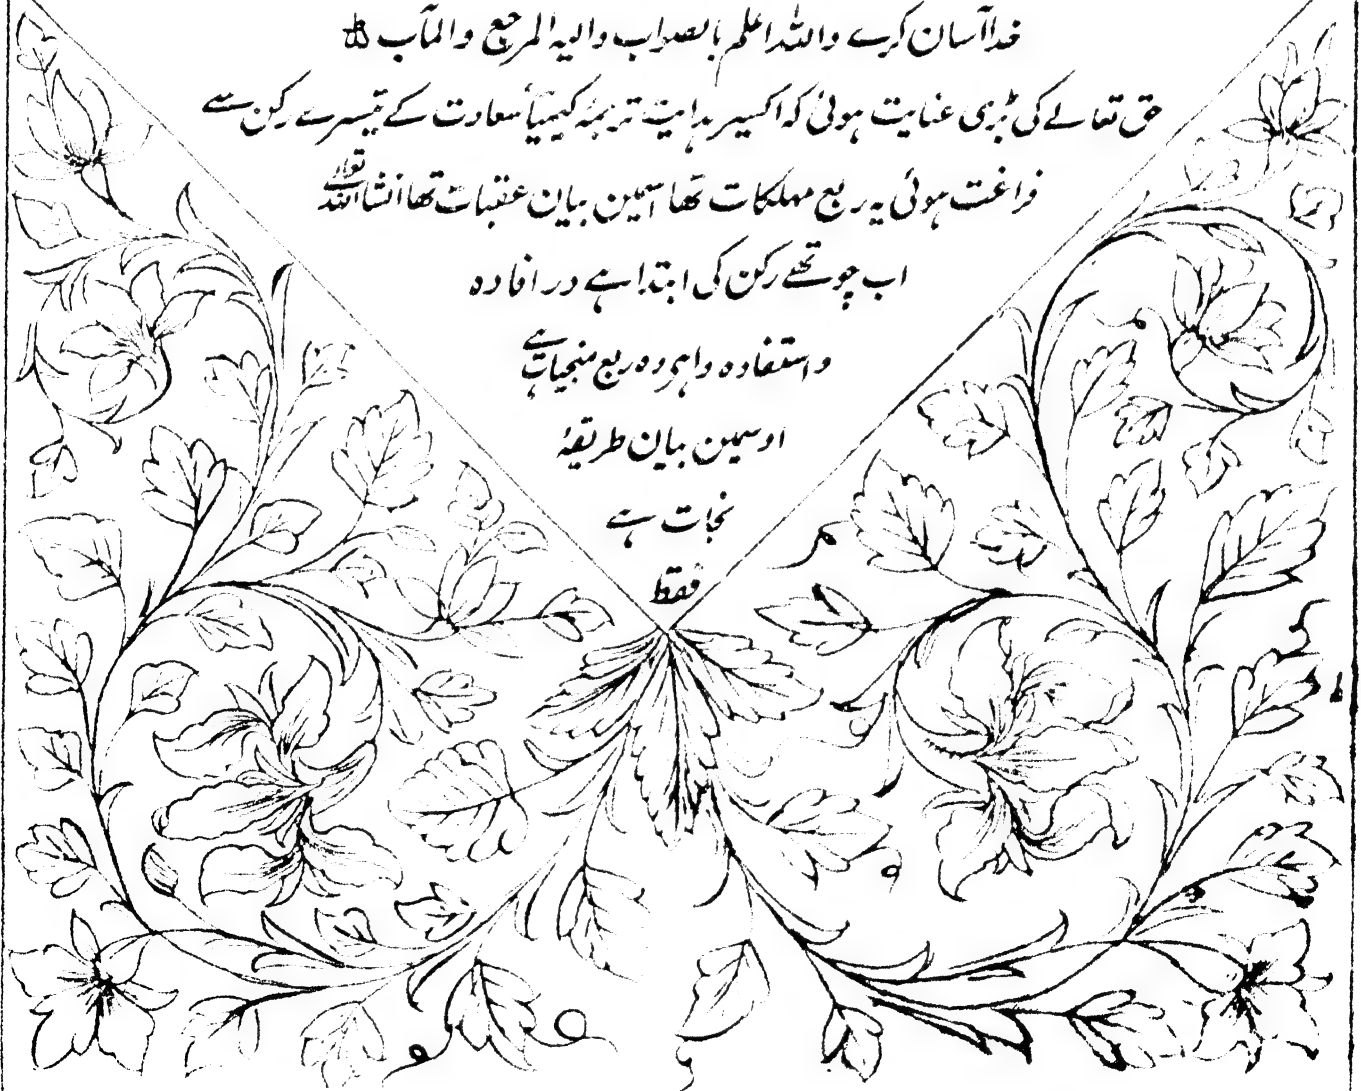 خدا آسان کرے واللہ اعلم بالصواب والیہ المرجع والمآب
حق تعالے کی بڑی عنایت ہوئی کہ اکسیر ہدایت ترجمۂ کیمیاۓ سعادت کے تیسرے رکن سے
فراغت ہوئی یہ ربع مہلکات تھا اسمین بیان عقبات تھا انشاءاللہ تعالےٰ
اب چوتھے رکن کی ابتدا ہے در افادہ
واستفادہ وا ہو وہ ربع منجیات ہے
اوسمین بیان طریقۂ
نجات ہے
فقط